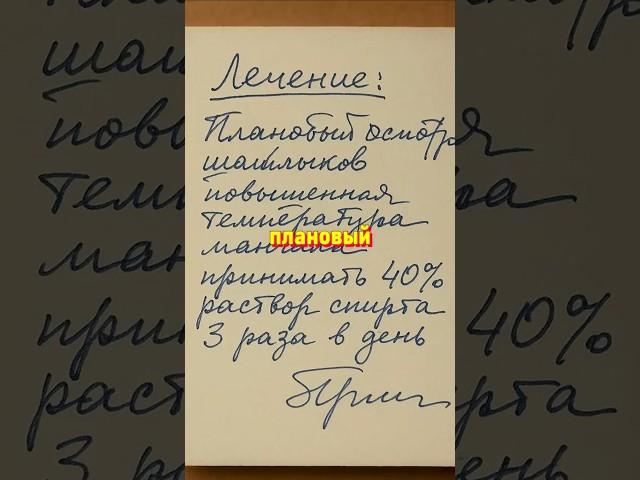 Лечение:
Плановый осмотр
шашлыков
повышенная
температура
мангала
плановый
принимать 40%
раствор спирта
3 раза в день